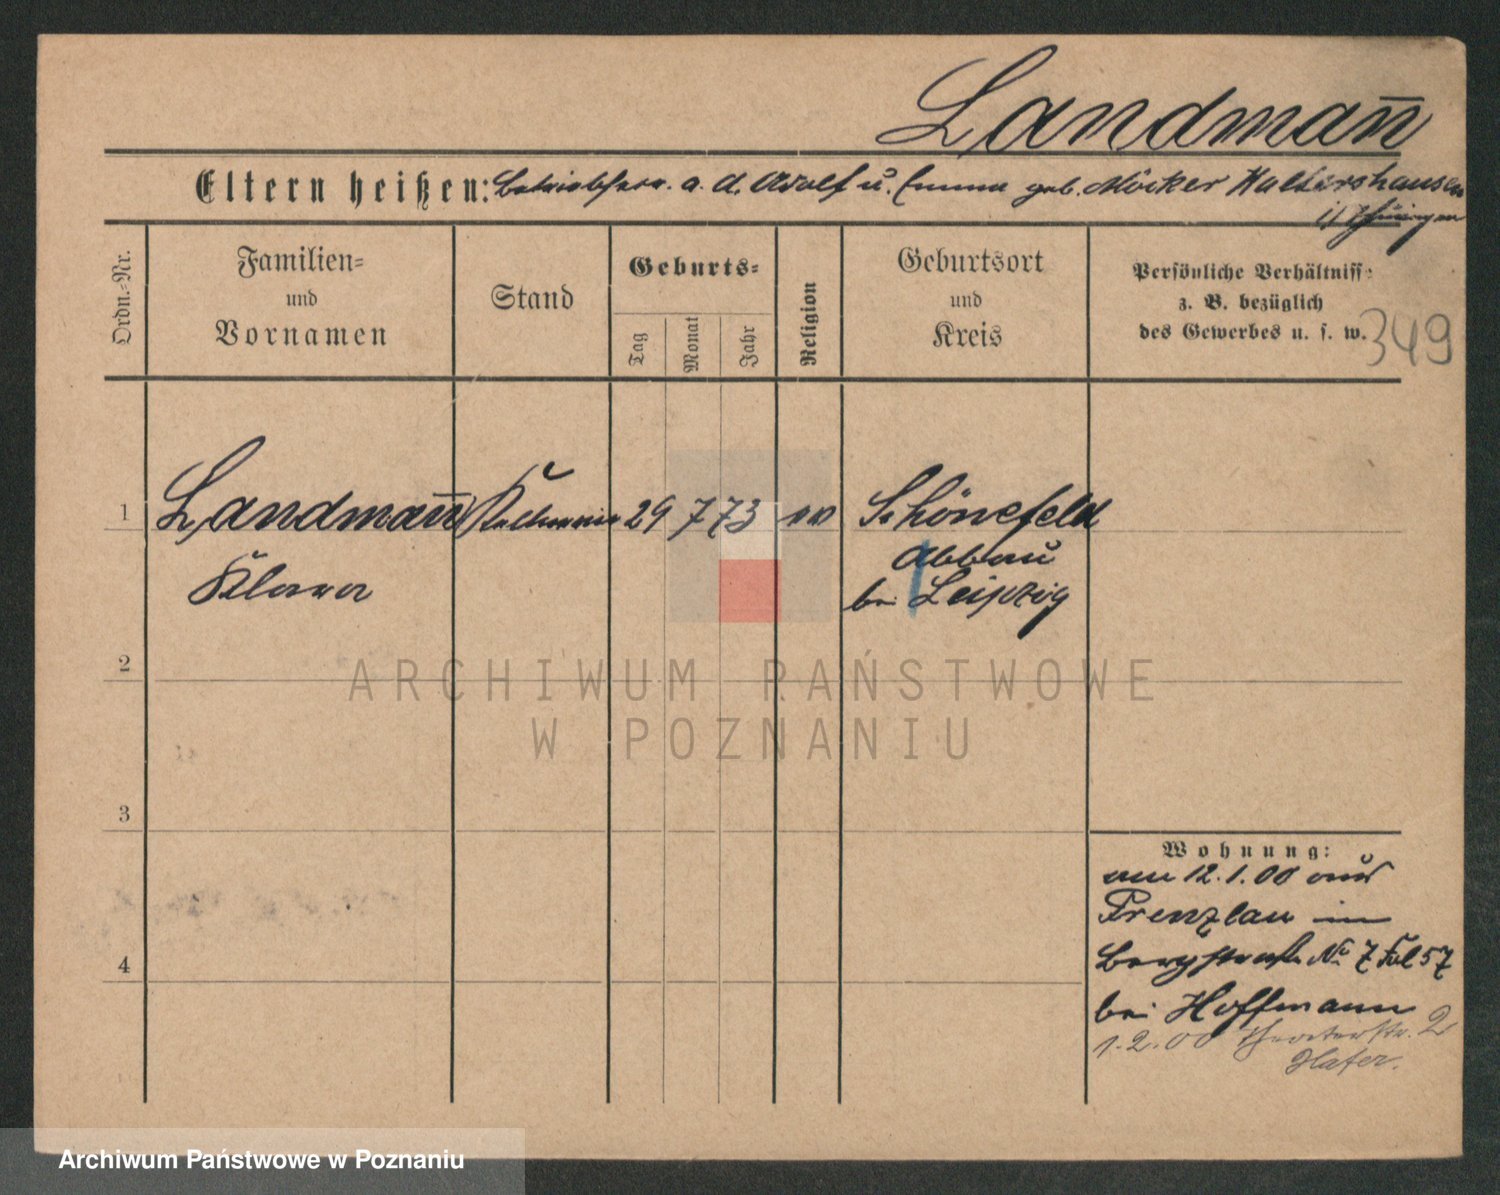 Landmann
Eltern heißen: a. d. Adolf u. Emma geb. Möcker Waltershausen
i/ Thüringen
Ordn.-Nr.
Familien-
und
Vornamen
Stand
Geburts-
Tag
Monat
Jahr
Religion
Geburtsort
und
Kreis
Persönliche Verhältnisse
z. B. bezüglich
des Gewerbes u. s. w.
349
1 Landmann 29 7 73 ev Schönefeld
Klara
Abbau
bei Leipzig
2
3
4
Wohnung:
am 12.1.00 aus
Prenzlau in
Bergstraße No 7 57
bei Hoffmann
1.2.00 Theaterstr. 2
Hafer.
ARCHIWUM PAŃSTWOWE
W POZNANIU
Archiwum Państwowe w Poznaniu